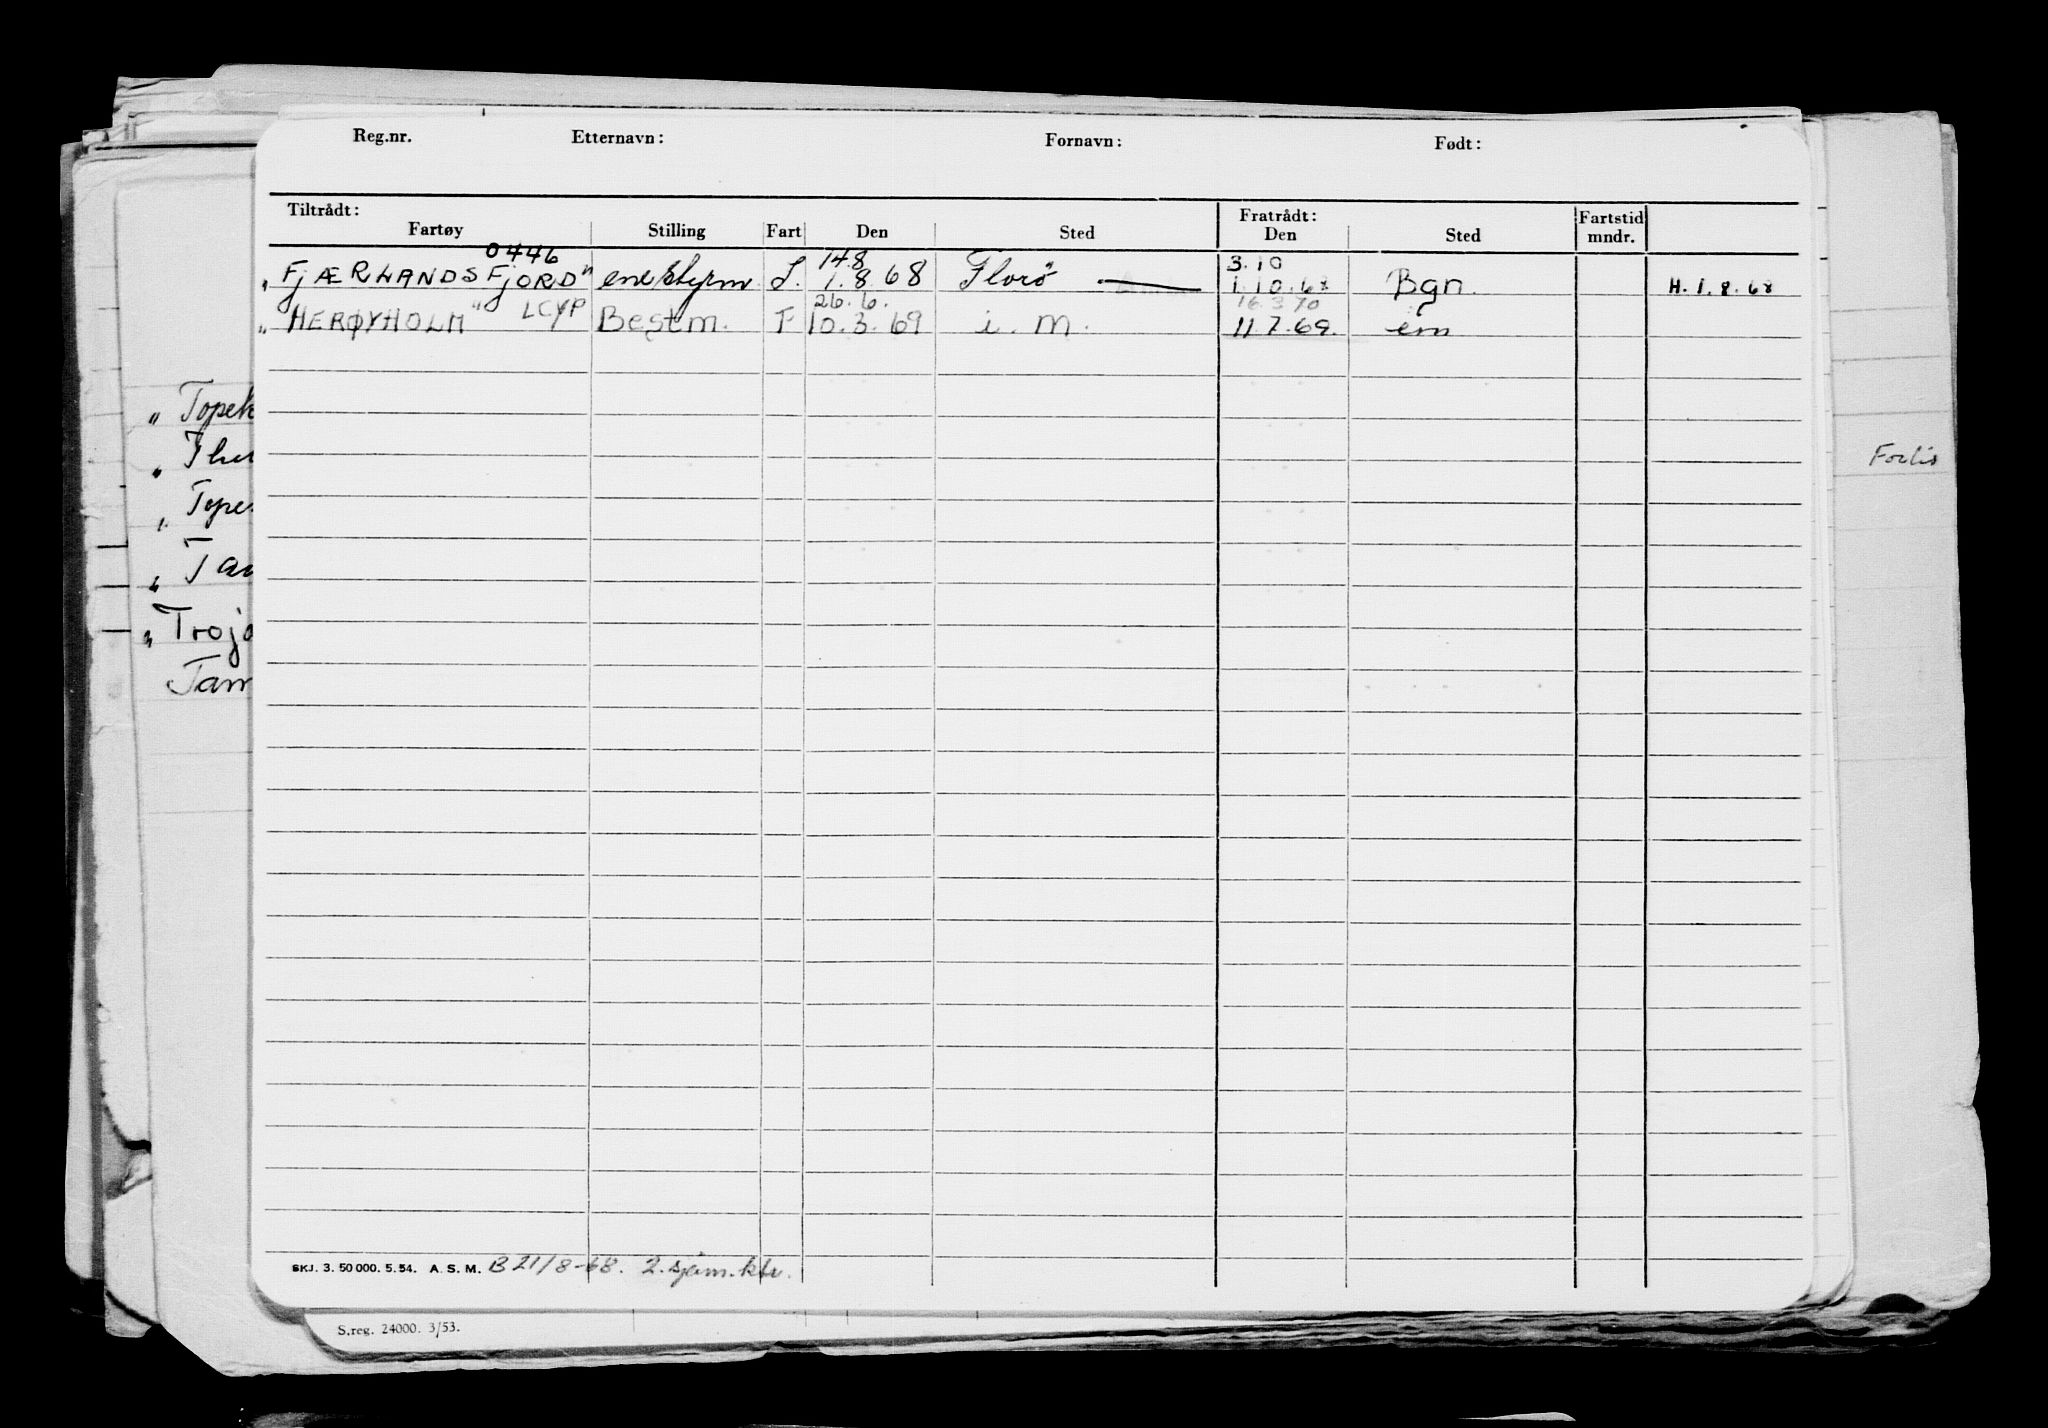 Reg.nr. Etternavn: Fornavn: Født:
Tiltrådt: Fratrådt: Fartstid
Fartøy Stilling Fart Den Sted Den Sted mndr.
0446 14.8 3.10
"FJÆRLANDSFJORD" enestyrm. S. 1.8.68 Florø — 1.10.68 Bgn. H. 1.8.68
26.6. 16.3 70
"HERØYHOLM" LCYP Bestm. F 10.3.69 i.m. 11 7.69. em
" Topek
"
" Tope
"
" Troja
Tam
Forlis
SKJ. 3. 50 000. 5. 54. A. S. M. B 21/8-68. 2. sjøm. ktr.
S.reg. 24000. 3/53.